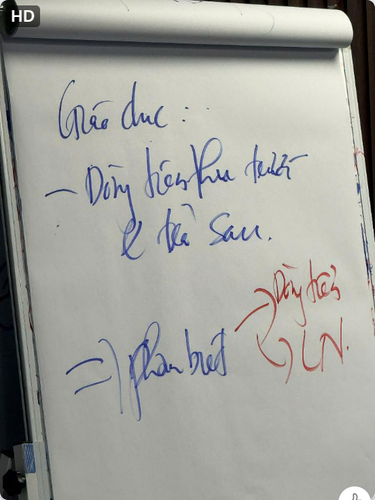 HD
Giáo dục :
- Dòng tiền thu trước
& trả sau.
=> phân biệt
-> Dòng tiền
-> LN.